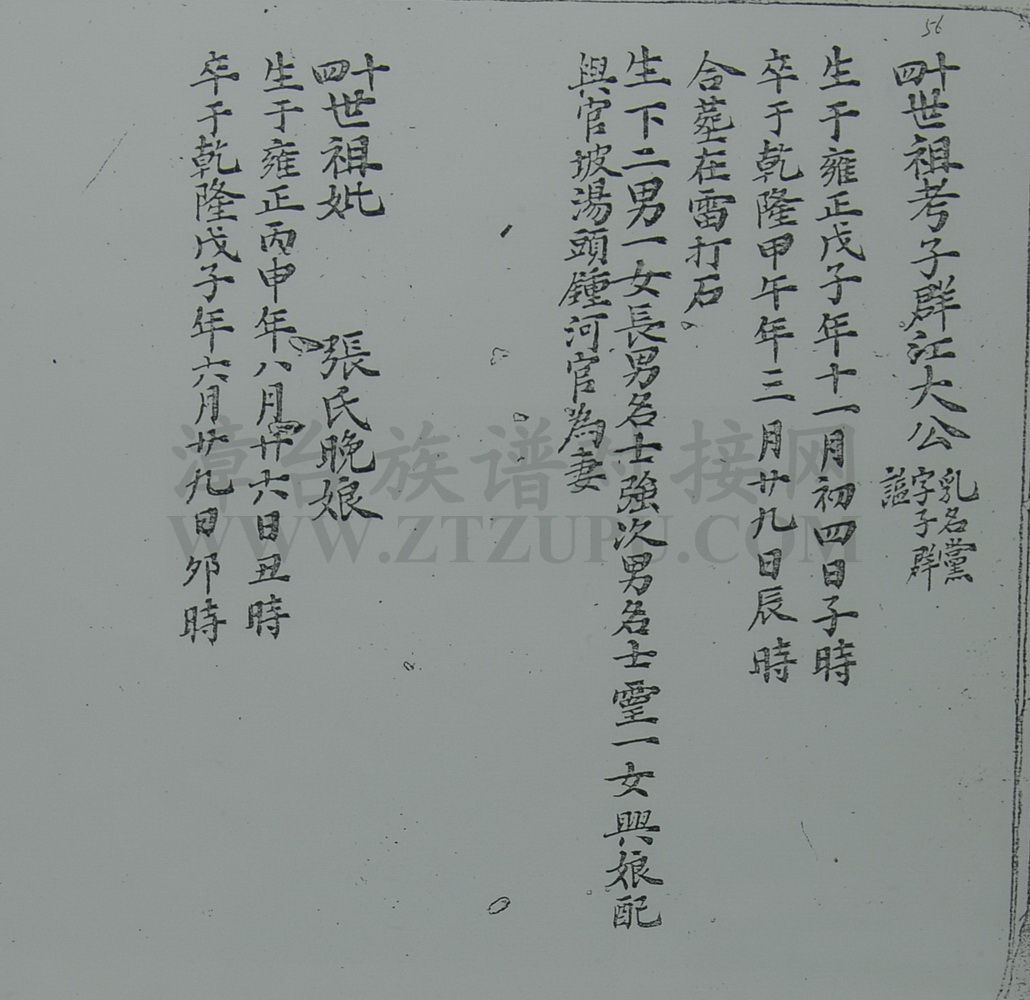 56
十四世祖考子群江大公
乳名黨
字子群
謚
生于雍正戊子年十一月初四日子時
卒于乾隆甲午年三月廿九日辰時
合塟在雷打石
生下二男一女長男名士強次男名士灵一女興娘配
與官坡湯頭鍾河官為妻
十四世祖妣 張氏晚娘
生于雍正丙申年八月廿六日丑時
卒于乾隆戊子年六月廿九日卯時
漳台族谱对接网
WWW.ZTZUPU.COM